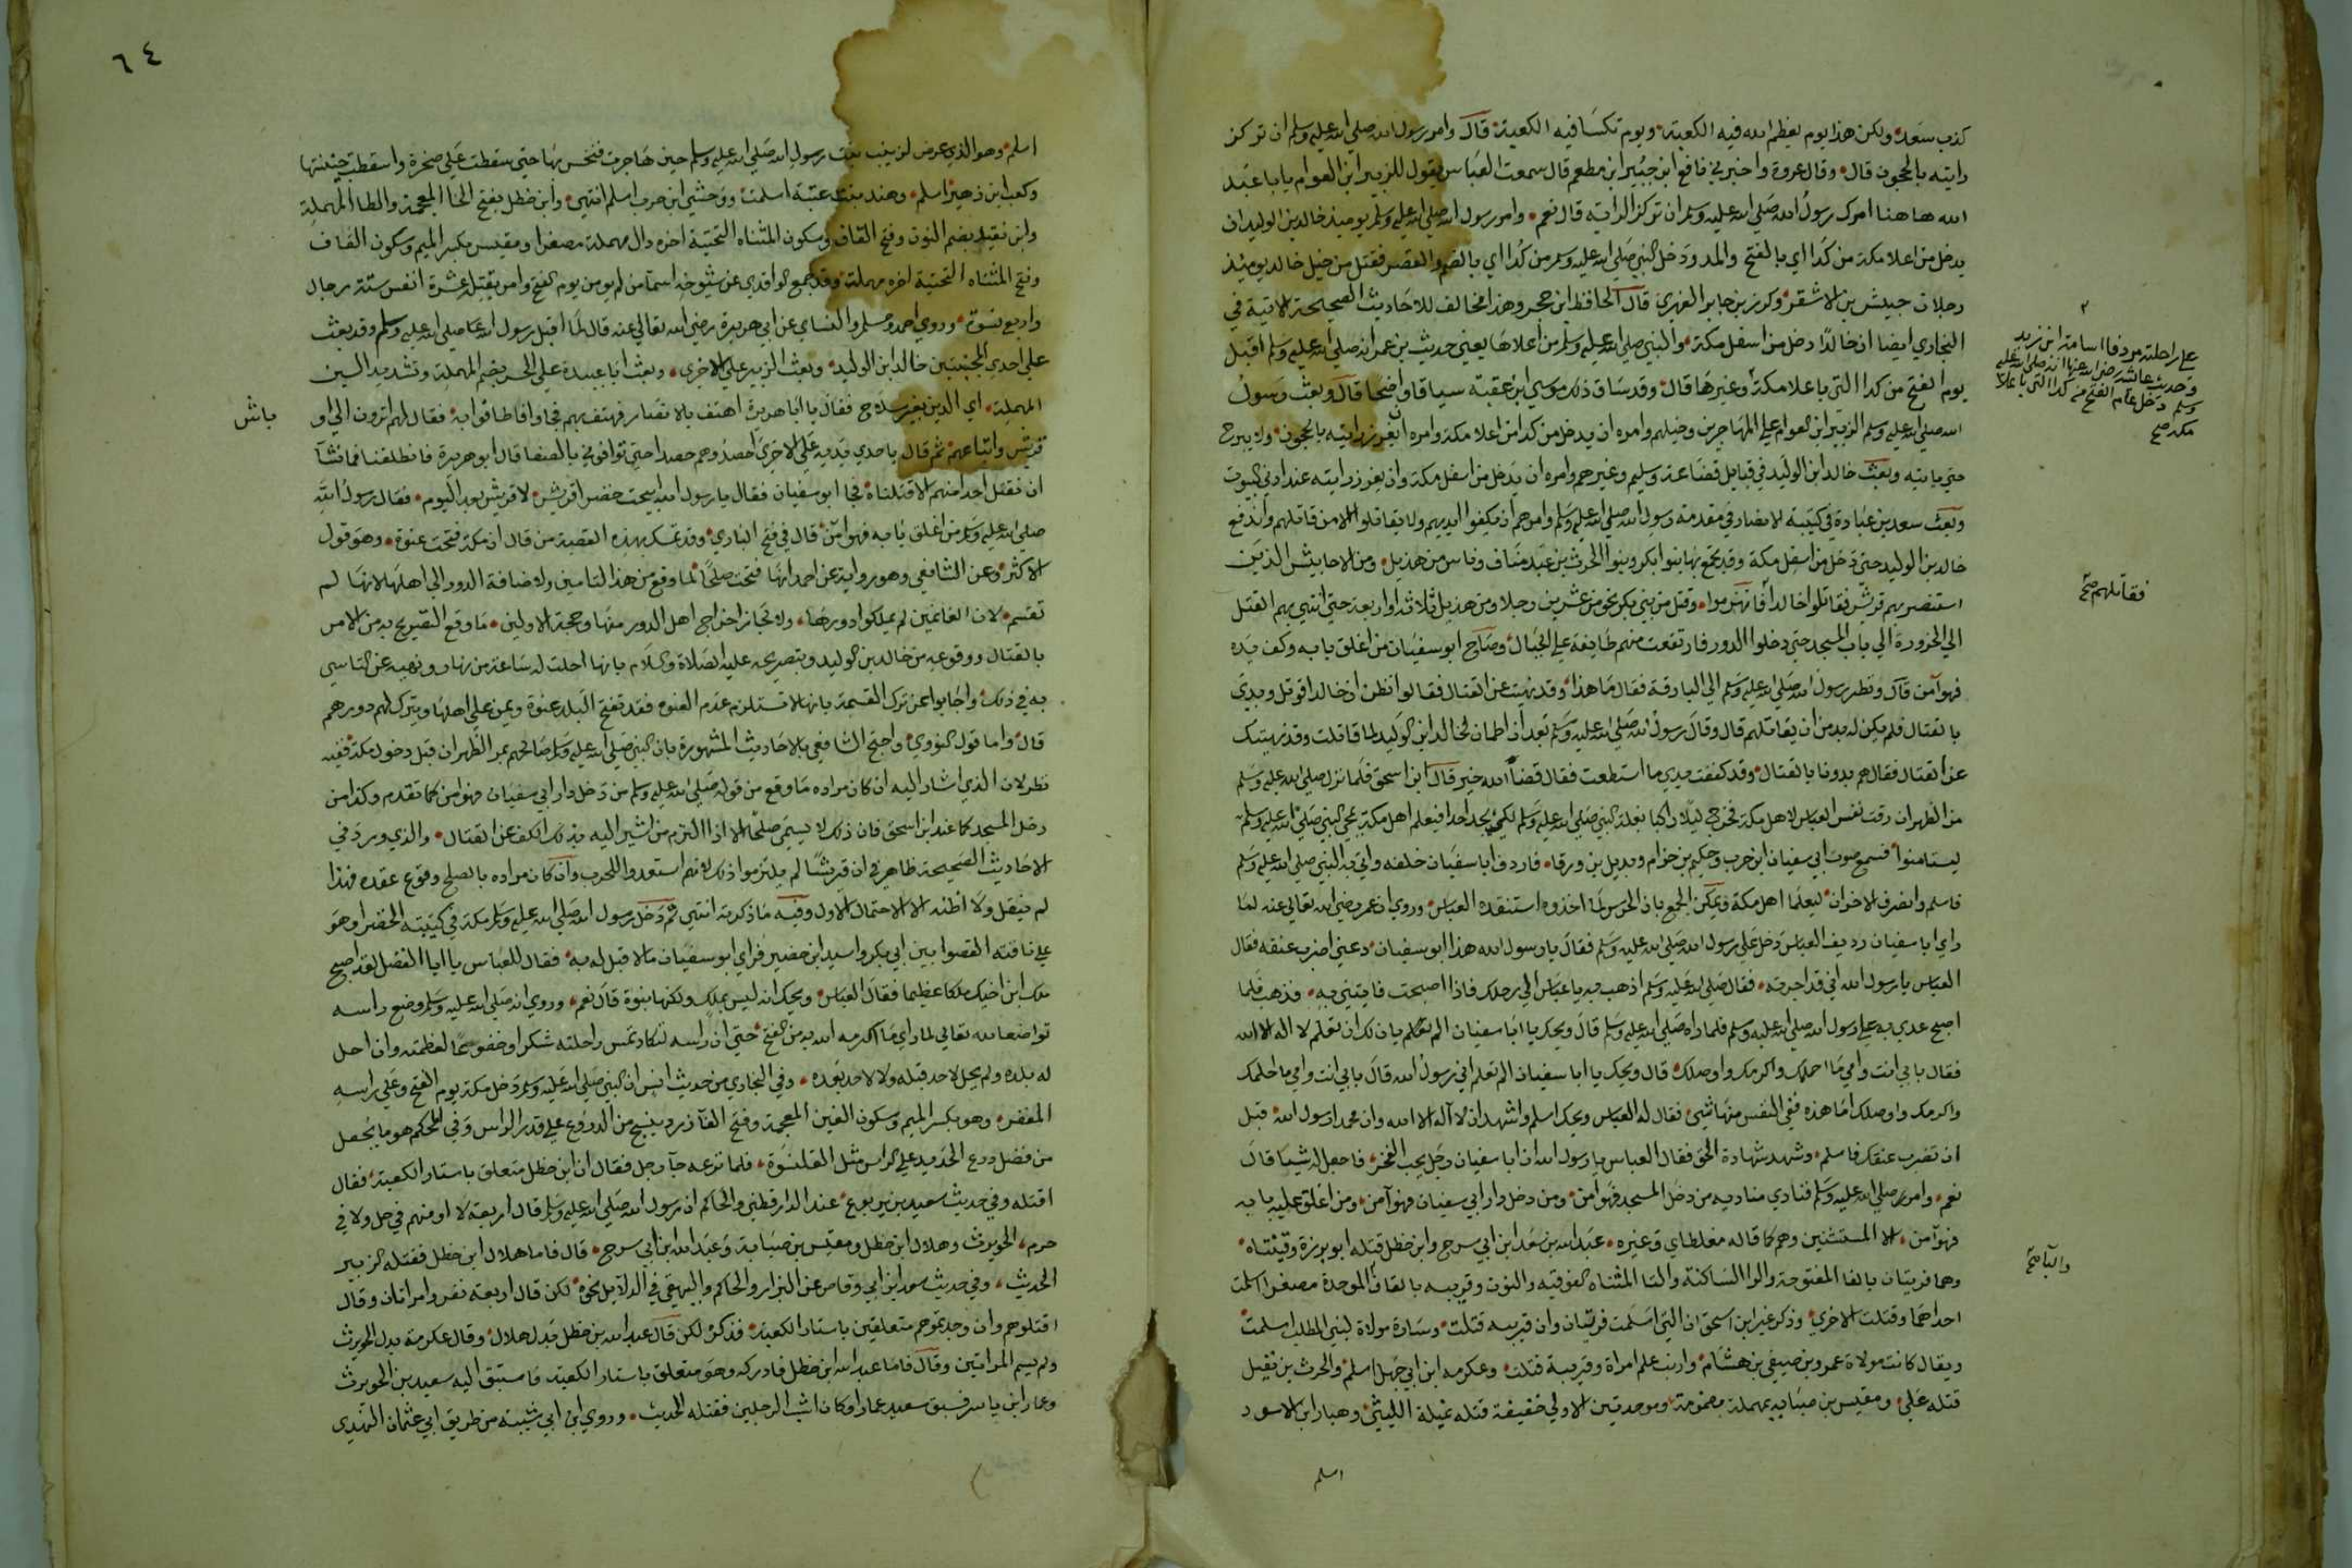 كذب سعد ولكن هذا يوم يعظم الله فيه الكعبة ويوم تكسا فيه الكعبة قال وامر رسول الله صلي الله عليه وسلم ان تركز
رايته بالحجون قال وقال عروة واخبرني نافع ابن جبير ابن مطعم قال سمعت العباس يقول للزبير ابن العوام يابا عبد
الله هاهنا امرك رسول الله صلي الله عليه وسلم ان تركز الراية قال نعم وامر رسول الله صلي الله عليه وسلم يوميذ خالد بن الوليد ان
يدخل من اعلا مكة من كدا اي بالفتح والمد ودخل النبي صلي الله عليه وسلم من كدا اي بالضم والقصر فقتل من خيل خالد يوميذ
رجلان حبيش بن الاشقر وكرز بن جابر الفهري قال الحافظ ابن حجر وهذا مخالف للاحاديث الصحيحة الاتية في
البخاري ايضا ان خالدا دخل من اسفل مكة والنبي صلي الله عليه وسلم من اعلاها يعني حديث بن عمر انه صلي الله عليه وسلم اقبل
يوم الفتح من كدا التي باعلا مكة وغيرها قال وقد ساق ذلك موسي ابن عقبة سياقا واضحا قال وبعث رسول
الله صلي الله عليه وسلم الزبير ابن العوام علي المهاجرين وخيلهم وامره ان يدخل من كدا من اعلا مكة وامره ان يغرز رايته بالحجون ولا يبرح
حتي ياتيه وبعث خالد ابن الوليد في قبايل قضاعة وسليم وغيرهم وامره ان يدخل من اسفل مكة وان يغرز رايته عند ادني البيوت
وبعث سعد بن عبادة في كتيبة الانصار في مقدمة رسول الله صلي الله عليه وسلم وامرهم ان يكفوا ايديهم ولا يقاتلوا الا من قاتلهم واندفع
خالد بن الوليد حتي دخل من اسفل مكة وقد تجمع بها بنوا بكر وبنوا الحرث بن عبد مناف وناس من هذيل ومن الاحابيش الذين
استنصر بهم قريش فقاتلوا خالدا فانهزموا وقتل من بني بكر نحو من عشرين رجلا ومن هذيل ثلاثة او اربعة حتي انتهي بهم القتل
الي الحزورة الي باب المسجد حتي دخلوا الدور فارتفعت منهم طايفة علي الجبال وصاح ابو سفيان من اغلق بابه وكف يده
فهو امن قال ونظر رسول الله صلي الله عليه وسلم الي البارقة فقال ما هذا وقد نهيت عن القتال فقالوا نظن ان خالدا قوتل وبدي
بالقتال فلم يكن له بد من ان يقاتلهم قال وقال رسول الله صلي الله عليه وسلم بعد ان اطمان لخالد ابن الوليد لما قاتلت وقد نهيتك
عن القتال فقال هم بدونا بالقتال وقد كففت يدي ما استطعت فقال قضا الله خير قال ابن اسحق فلما نزل صلي الله عليه وسلم
مر الظهران رقت نفس العباس لاهل مكة فخرج ليلا راكبا بغلة النبي صلي الله عليه وسلم لكي يجد احدا فيعلم اهل مكة بمجي النبي صلي الله عليه وسلم
ليستامنوا فسمع صوت ابي سفيان ابن حرب وحكيم بن حزام وبديل بن ورقا فاردف ابا سفيان خلفه واتي به النبي صلي الله عليه وسلم
فاسلم وانصرف الاخران ليعلما اهل مكة ويمكن الجمع بان الحرس لما اخذوه استنقذه العباس وروي ان عمر رضي الله تعالي عنه لما
راي ابا سفيان رديف العباس دخل علي رسول الله صلي الله عليه وسلم فقال يا رسول الله هذا ابو سفيان دعني اضرب عنقه فقال
العباس يا رسول الله اني قد اجرته فقال صلي الله عليه وسلم اذهب به يا عباس الي رحلك فاذا اصبحت فاتيني به فذهب فلما
اصبح غدي به علي رسول الله صلي الله عليه وسلم فلما راه صلي الله عليه وسلم قال ويحك يا ابا سفيان الم يان لك ان تعلم لا اله الا الله
فقال بابي انت وامي ما احلمك واكرمك واوصلك قال ويحك يا ابا سفيان الم تعلم اني رسول الله قال بابي انت وامي ما احلمك
واكرمك واوصلك اما هذه ففي النفس منها شي فقال له العباس ويحك اسلم واشهد ان لا اله الا الله وان محمدا رسول الله قبل
ان تضرب عنقك فاسلم وشهد شهادة الحق فقال العباس يا رسول الله ان ابا سفيان رجل يحب الفخر فاجعل له شيا قال
نعم وامر صلي الله عليه وسلم فنادي مناديه من دخل المسجد فهو امن ومن دخل دار ابي سفيان فهو آمن ومن اغلق عليه بابه
فهو آمن الا المستثنين وهم كما قاله مغلطاي وغيره عبد الله بن سعد ابن ابي سرح وابن خطل قتله ابو برزة وقينتاه
وهما فرتنان بالفا المفتوحة والرا الساكنة والتا المثناه الفوقيه والنون وقريبه بالقاف الموحدة مصغرا اسلمت
احداهما وقتلت الاخري وذكر غير ابن اسحق ان التي اسلمت فرتنان وان قريبه قتلت وسارة مولاة لبني المطلب اسلمت
ويقال كانت مولاة عمرو بن صيفي بن هشام وارنب علم امراة وقريبة قتلت وعكرمه ابن ابي جهل اسلم والحرث بن نفيل
قتله علي ومقيس بن صبابه بمهملة مضمومة وموحدتين الاولي خفيفة قتله نميلة الليثي وهبار ابن الاسود
اسلم
علي راحلته مردفا اسامة ابن زيد
وحديث عائشة رضي الله عنها انه صلي الله عليه
وسلم دخل عام الفتح من كدا التي باعلا
مكة صح
فقاتلهم صح
والبا صح
٦٤
اسلم وهو الذي عرض لزينب بنت رسول الله صلي الله عليه وسلم حين هاجرت فنخس بها حتي سقطت علي صخرة واسقطت جنينها
وكعب ابن زهير اسلم وهند بنت عتبة اسلمت ووحشي ابن حرب اسلم انتهي وابن خطل بفتح الخا المعجمة والطا المهملة
وابن نقيد بضم النون وفتح القاف وسكون المثناه التحتية اخره دال مهملة مصغرا ومقيس بكسر الميم وسكون القاف
وفتح المثناه التحتية اخره مهملة وقد جمع الواقدي عن شيوخه اسما من لم يومن يوم الفتح وامر بقتله عشرة انفس ستة رجال
واربع نسوة وروي احمد ومسلم والنساي عن ابي هريرة رضي الله تعالي عنه قال لما اقبل رسول الله صلي الله عليه وسلم وقد بعث
علي احدي المجنبتين خالد ابن الوليد وبعث الزبير علي الاخري وبعث ابا عبيدة علي الحسر بضم المهملة وتشديد السين
المهملة اي الذين بغير سلاح فقال يا ابا هريرة اهتف بالانصار فهتف بهم فجاوا فاطافوا به فقال لهم اترون الي او
باش
قريش واتباعهم ثم قال باحدي يديه علي الاخري احصدوهم حصدا حتي توافوني بالصفا قال ابو هريرة فانطلقنا فما نشآ
ان نقتل احدا منهم الا قتلناه فجا ابو سفيان فقال يا رسول الله ابيحت خضرا قريش لا قريش بعد اليوم فقال رسول الله
صلي الله عليه وسلم من اغلق بابه فهو امن قال في فتح الباري وقد تمسك بهذه القصة من قال ان مكة فتحت عنوة وهو قول
الاكثر وعن الشافعي وهو رواية عن احمد انها فتحت صلحا لما وقع من هذا التامين ولاضافة الدور الي اهلها ولانها لم
تقسم لان الغانمين لم يملكوا دورها ولا لجاز اخراج اهل الدور منها وحجة الاولين ما وقع التصريح به من الامر
بالقتال ووقوعه من خالد بن الوليد وبتصريحه عليه الصلاة والسلام بانها احلت له ساعة من نهار ونهيه عن التاسي
به في ذلك واجابوا عن ترك القسمة بانها لا تستلزم عدم العنوه فقد تفتح البلد عنوة ويمن علي اهلها ويترك لهم دورهم
قال واما قول النووي واحتج الشافعي بالاحاديث المشهورة بان النبي صلي الله عليه وسلم صالحهم بمر الظهران قبل دخول مكة ففيه
نظر لان الذي اشار اليه ان كان مراده ما وقع من قوله صلي الله عليه وسلم من دخل دار ابي سفيان فهو امن كما تقدم وكذا من
دخل المسجد كما عند ابن اسحق فان ذلك لا يسمي صلحا الا اذا التزم من اشير اليه بذلك الكف عن القتال والذي ورد في
الاحاديث الصحيحة ظاهر في ان قريشا لم يلتزموا ذلك لانهم استعدوا للحرب وان كان مراده بالصلح وقوع عقده فهذا
لم ينقل ولا اظنه الا الاحتمال الاول وفيه ما ذكرته انتهي ثم دخل رسول الله صلي الله عليه وسلم مكة في كتيبته الخضرا وهو
علي ناقته القصوا بين ابي بكر واسيد ابن حضير فراي ابو سفيان ما لا قبل له به فقال للعباس يا ابا الفضل لقد اصبح
ملك ابن اخيك ملكا عظيما فقال العباس ويحك انه ليس بملك ولكنها نبوة قال نعم وروي انه صلي الله عليه وسلم وضع راسه
تواضعا لله تعالي لما راي ما اكرمه الله به من الفتح حتي ان راسه لتكاد تمس راحلته شكرا وخضوعا لعظمته وان احل
له بلده ولم يحل لاحد قبله ولا لاحد بعده وفي البخاري من حديث انس ان النبي صلي الله عليه وسلم دخل مكة يوم الفتح وعلي راسه
المغفر وهو بكسر الميم وسكون الغين المعجمة وفتح الفآ زرد ينسج من الدروع علي قدر الراس وفي المحكم هو ما يجعل
من فضل درع الحديد علي الراس مثل القلنسوة فلما نزعه جآ رجل فقال ان ابن خطل متعلق باستار الكعبة فقال
اقتله وفي حديث سعيد بن يربوع عند الدارقطني والحاكم ان رسول الله صلي الله عليه وسلم قال اربعة لا اومنهم في حل ولا في
حرم الحويرث وهلال ابن خطل ومقيس بن صبابة وعبد الله ابن ابي سرح قال فاما هلال ابن خطل فقتله الزبير
الحديث وفي حديث سعد ابن ابي وقاص عن البزار والحاكم والبيهقي في الدلايل نحوه لكن قال اربعة نفر وامراتان وقال
اقتلوهم وان وجدتموهم متعلقين باستار الكعبة فذكره لكن قال عبد الله بن خطل بدل هلال وقال عكرمة بدل الحويرث
ولم يسم المراتين وقال فاما عبد الله ابن خطل فادركه وهو متعلق باستار الكعبة فاستبق اليه سعيد بن الحويرث
وعمار ابن ياسر فسبق سعيد عمارا وكان اشب الرجلين فقتله الحديث وروي ابن ابي شيبة من طريق ابي عثمان النهدي